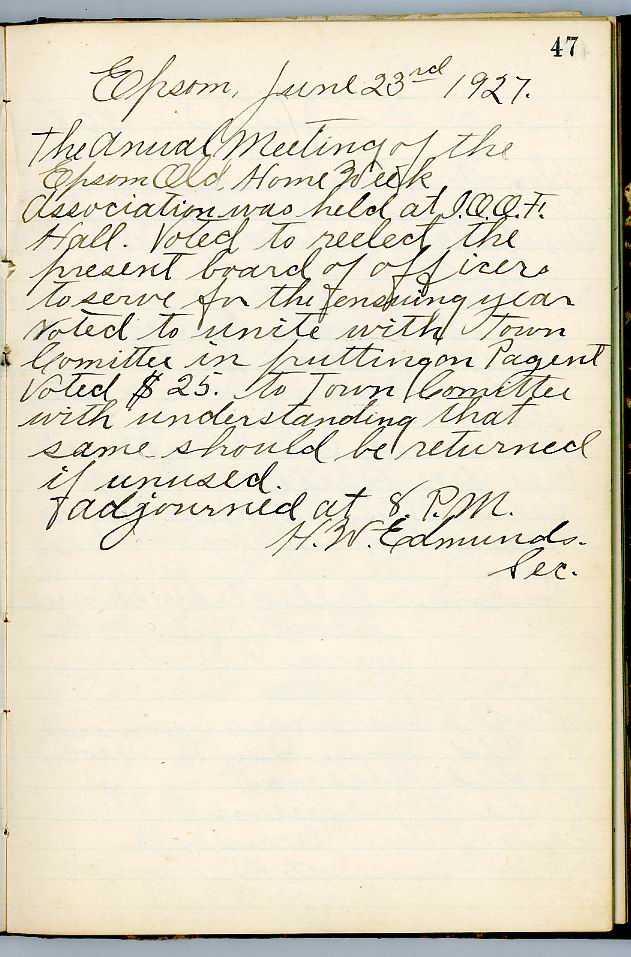 47
Epsom, June 23rd 1927.
The Anual Meeting of the
Epsom Old Home Week
Association was held at I.O.O.F.
Hall. Voted to reelect the
present board of officers
to serve for the ensuing year
Voted to unite with Town
Comittee in putting on Pagent
Voted $25. to Town Comittee
with understanding that
same should be returned
if unused.
adjourned at 8. P.M.
H.W. Edmunds.
Sec.